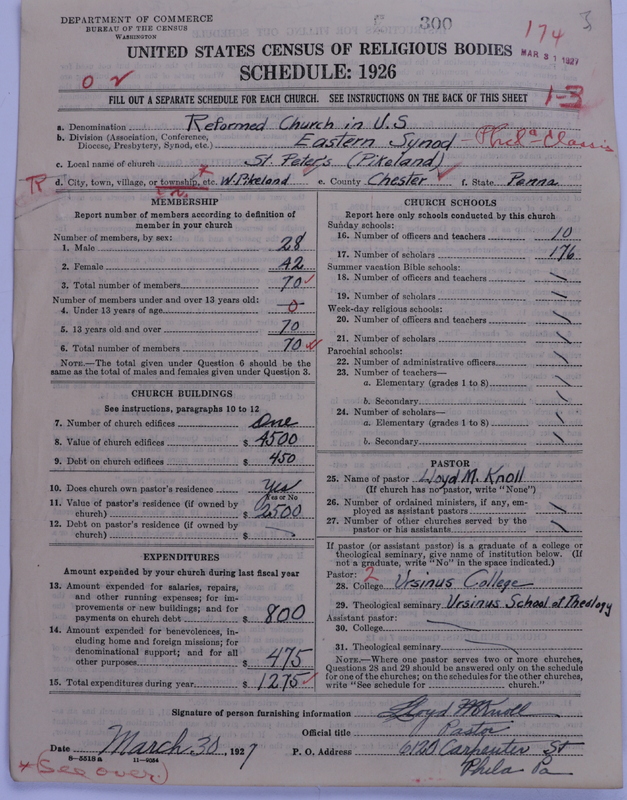 DEPARTMENT OF COMMERCE
BUREAU OF THE CENSUS
WASHINGTON
300
174
3
MAR 31 1927
UNITED STATES CENSUS OF RELIGIOUS BODIES
SCHEDULE: 1926
FILL OUT A SEPARATE SCHEDULE FOR EACH CHURCH. SEE INSTRUCTIONS ON THE BACK OF THIS SHEET
1-3
a. Denomination Reformed Church in U.S
b. Division (Association, Conference, Diocese, Presbytery, Synod, etc.) Eastern Synod - Phila Classis
c. Local name of church St. Peter's (Pikeland)
d. City, town, village, or township, etc. W. Pikeland e. County Chester f. State Penna
MEMBERSHIP
Report number of members according to definition of
member in your church
Number of members, by sex:
1. Male 28
2. Female 42
3. Total number of members 70
Number of members under and over 13 years old:
4. Under 13 years of age 0
5. 13 years old and over 70
6. Total number of members 70
NOTE.—The total given under Question 6 should be the
same as the total of males and females given under Question 3.
CHURCH BUILDINGS
See instructions, paragraphs 10 to 12
7. Number of church edifices One
8. Value of church edifices $ 4500
9. Debt on church edifices $ 450
10. Does church own pastor's residence Yes
Yes or No
11. Value of pastor's residence (if owned by
church) $ 2500
12. Debt on pastor's residence (if owned by
church) $
EXPENDITURES
Amount expended by your church during last fiscal year
13. Amount expended for salaries, repairs,
and other running expenses; for im-
provements or new buildings; and for
payments on church debt $ 800
14. Amount expended for benevolences, in-
cluding home and foreign missions; for
denominational support; and for all
other purposes $ 475
15. Total expenditures during year $ 1275
CHURCH SCHOOLS
Report here only schools conducted by this church
Sunday schools:
16. Number of officers and teachers 10
17. Number of scholars 176
Summer vacation Bible schools:
18. Number of officers and teachers
19. Number of scholars
Week-day religious schools:
20. Number of officers and teachers
21. Number of scholars
Parochial schools:
22. Number of administrative officers
23. Number of teachers—
a. Elementary (grades 1 to 8)
b. Secondary
24. Number of scholars—
a. Elementary (grades 1 to 8)
b. Secondary
PASTOR
25. Name of pastor Lloyd M. Knoll
(If church has no pastor, write "None")
26. Number of ordained ministers, if any, em-
ployed as assistant pastors
27. Number of other churches served by the
pastor or his assistants
If pastor (or assistant pastor) is a graduate of a college or
theological seminary, give name of institution below. (If
not a graduate, write "No" in the space indicated.)
Pastor: 2
28. College Ursinus College
29. Theological seminary Ursinus School of Theology
Assistant pastor:
30. College
31. Theological seminary
NOTE.—Where one pastor serves two or more churches,
Questions 28 and 29 should be answered only on the schedule
for one of the churches; on the schedules for the other churches,
write "See schedule for church."
Signature of person furnishing information Lloyd M Knoll
Official title Pastor
Date March 30, 1927 P. O. Address 6120 Carpenter St
Phila Pa
8-5518a 11-9054
*(See over.)